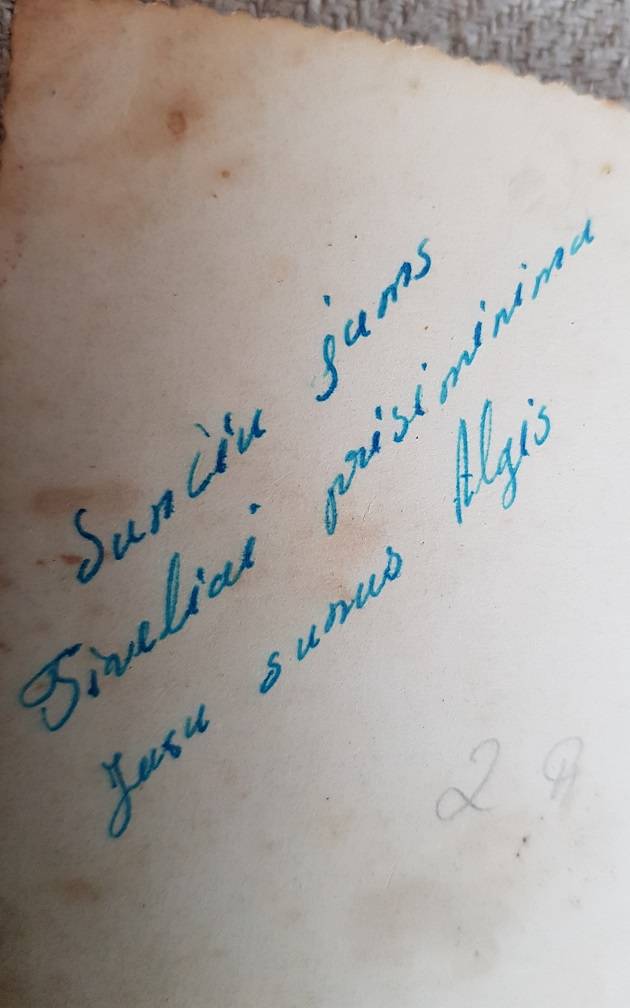 Sunčiu jums
Tiveliai prisiminima
Jusu sunus Algis
2